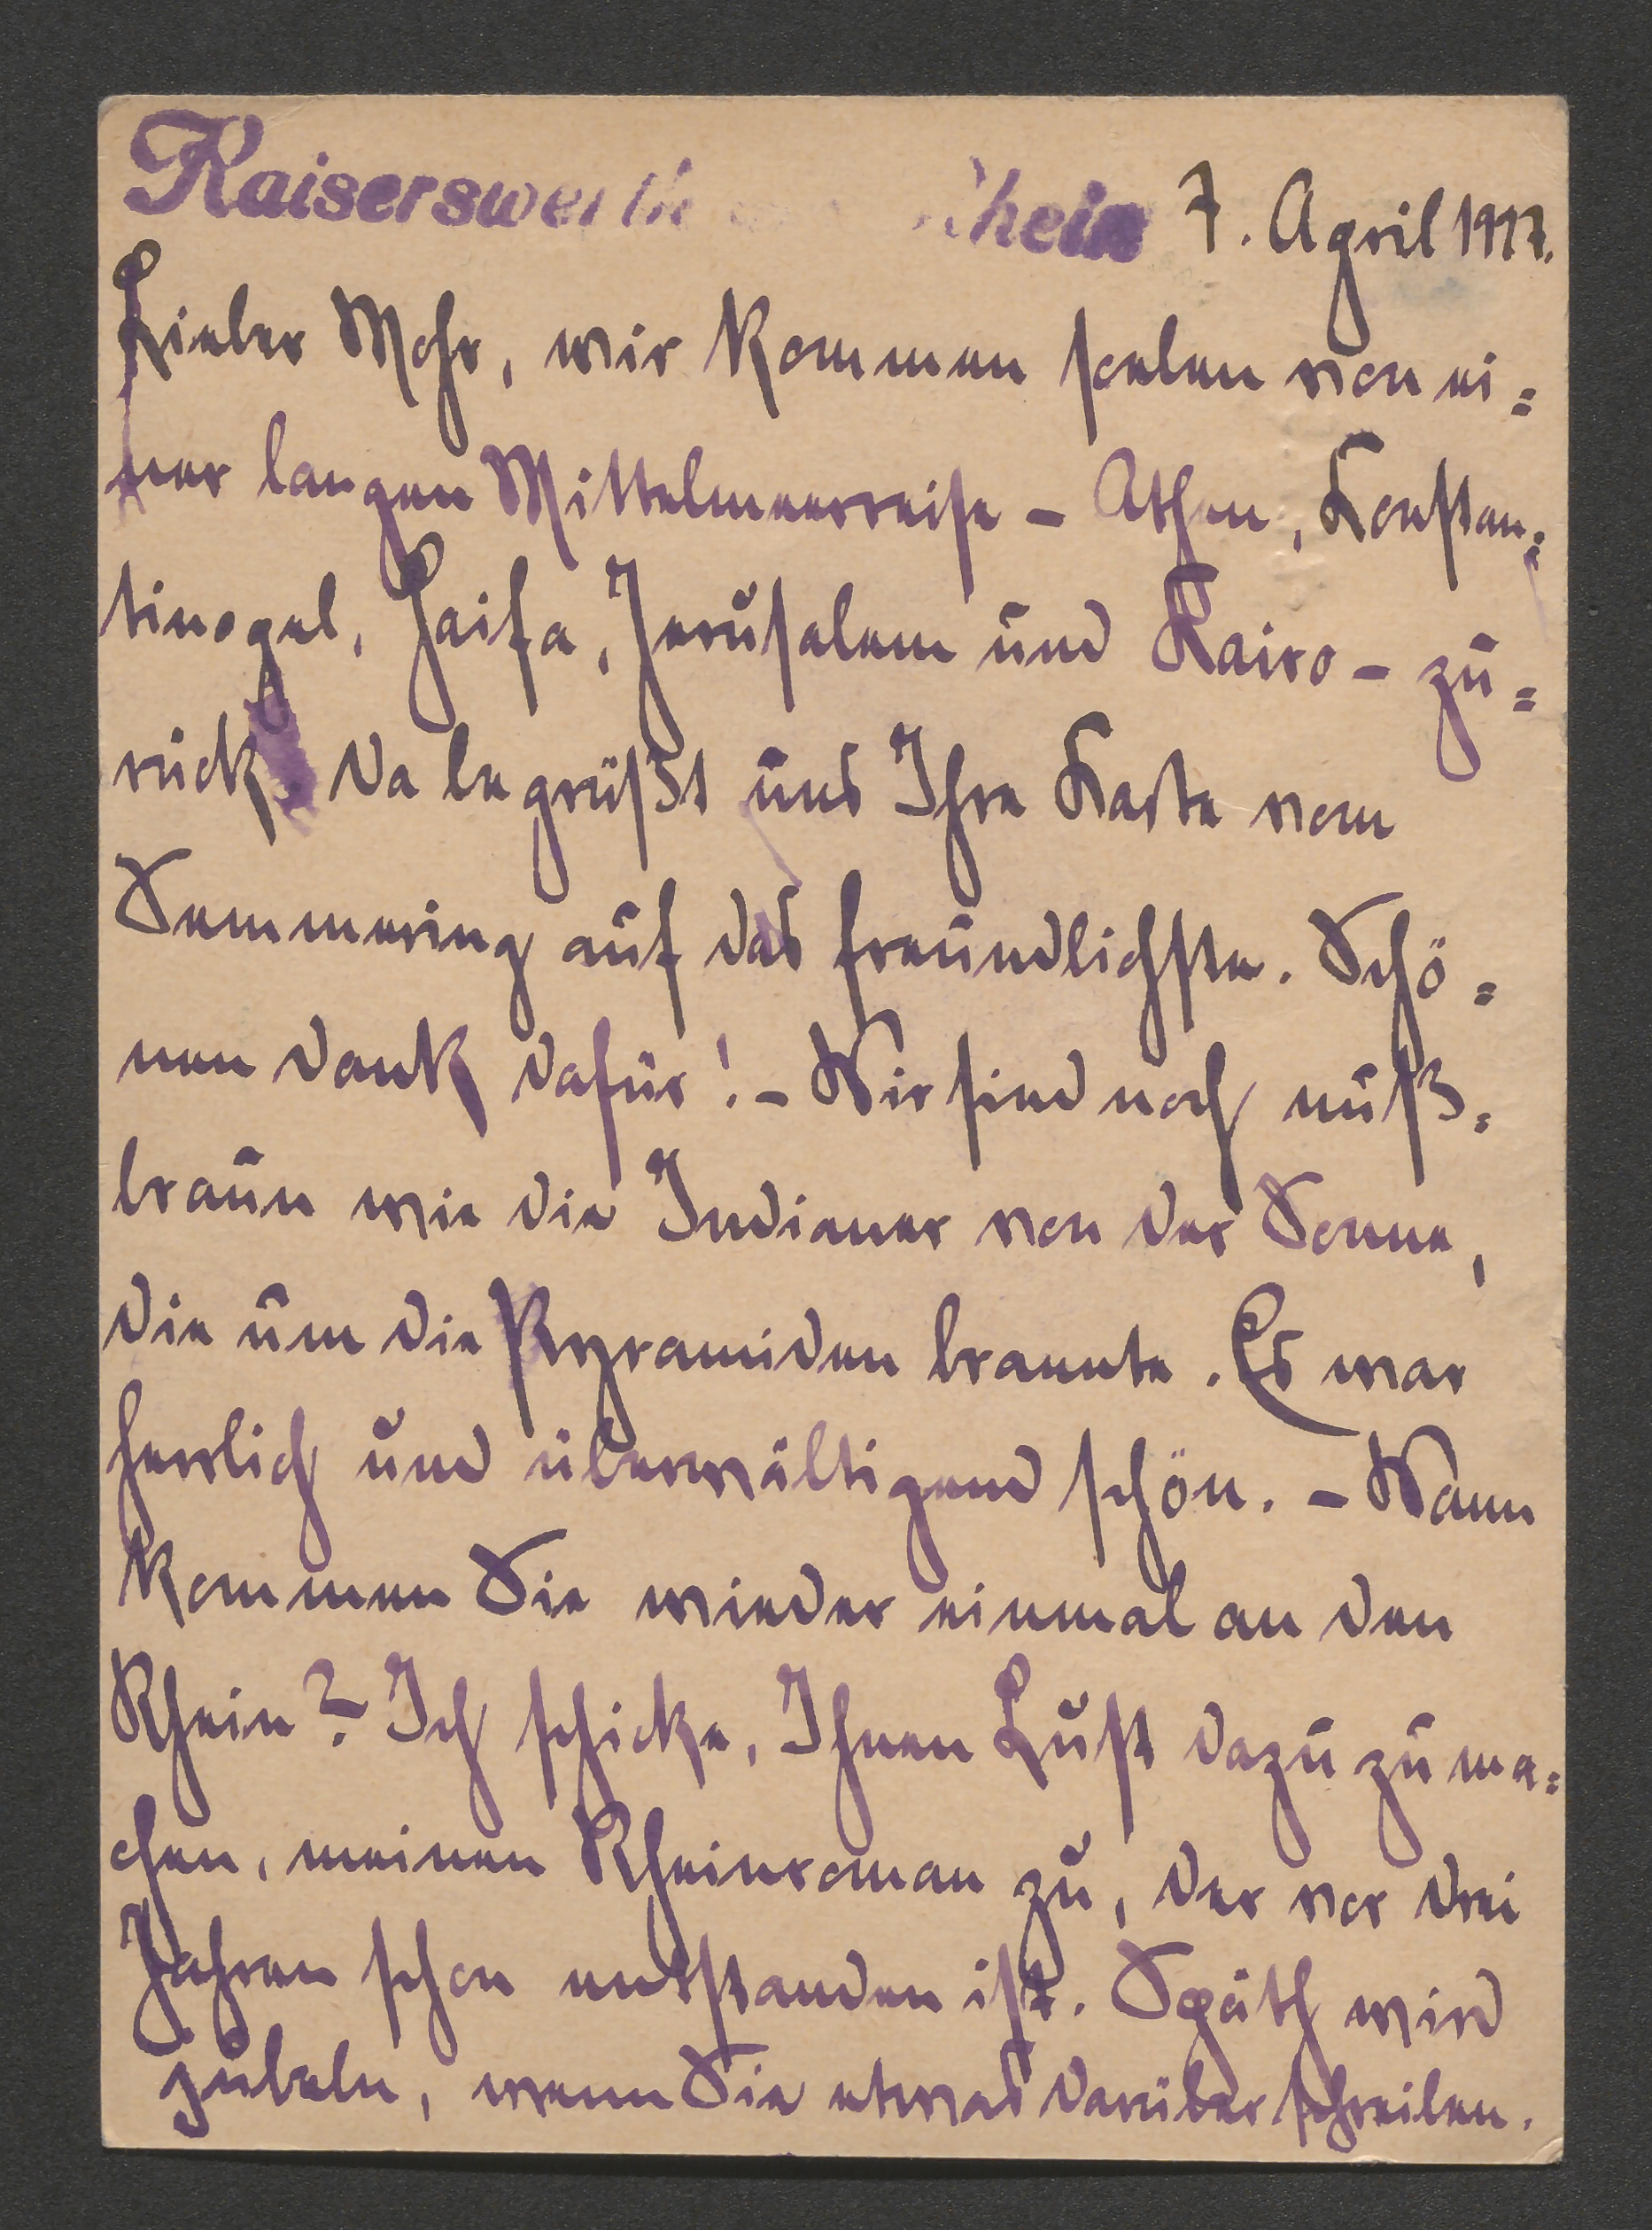 Kaiserswerth Rhein 7. April 1927.
Lieber Mohr, wir kommen soeben von ei=
ner langen Mittelmeerreise – Athen, Konstan=
tinopel, Haifa, Jerusalem und Kairo – zu=
rück. Da begrüßt uns Ihre Karte vom
Semmering auf das freundlichste. Schö=
nen Dank dafür! – Wir sind noch nuß=
braun wie die Indianer von der Sonne,
die um die Pyramiden brannte. Es war
herrlich und überwältigend schön. – Wann
kommen Sie wieder einmal an den
Rhein? Ich schicke, Ihnen Lust dazu zu ma=
chen, meinen Rheinroman zu, der vor drei
Jahren schon entstanden ist. Späth wird
jubeln, wenn Sie etwas darüber schreiben.